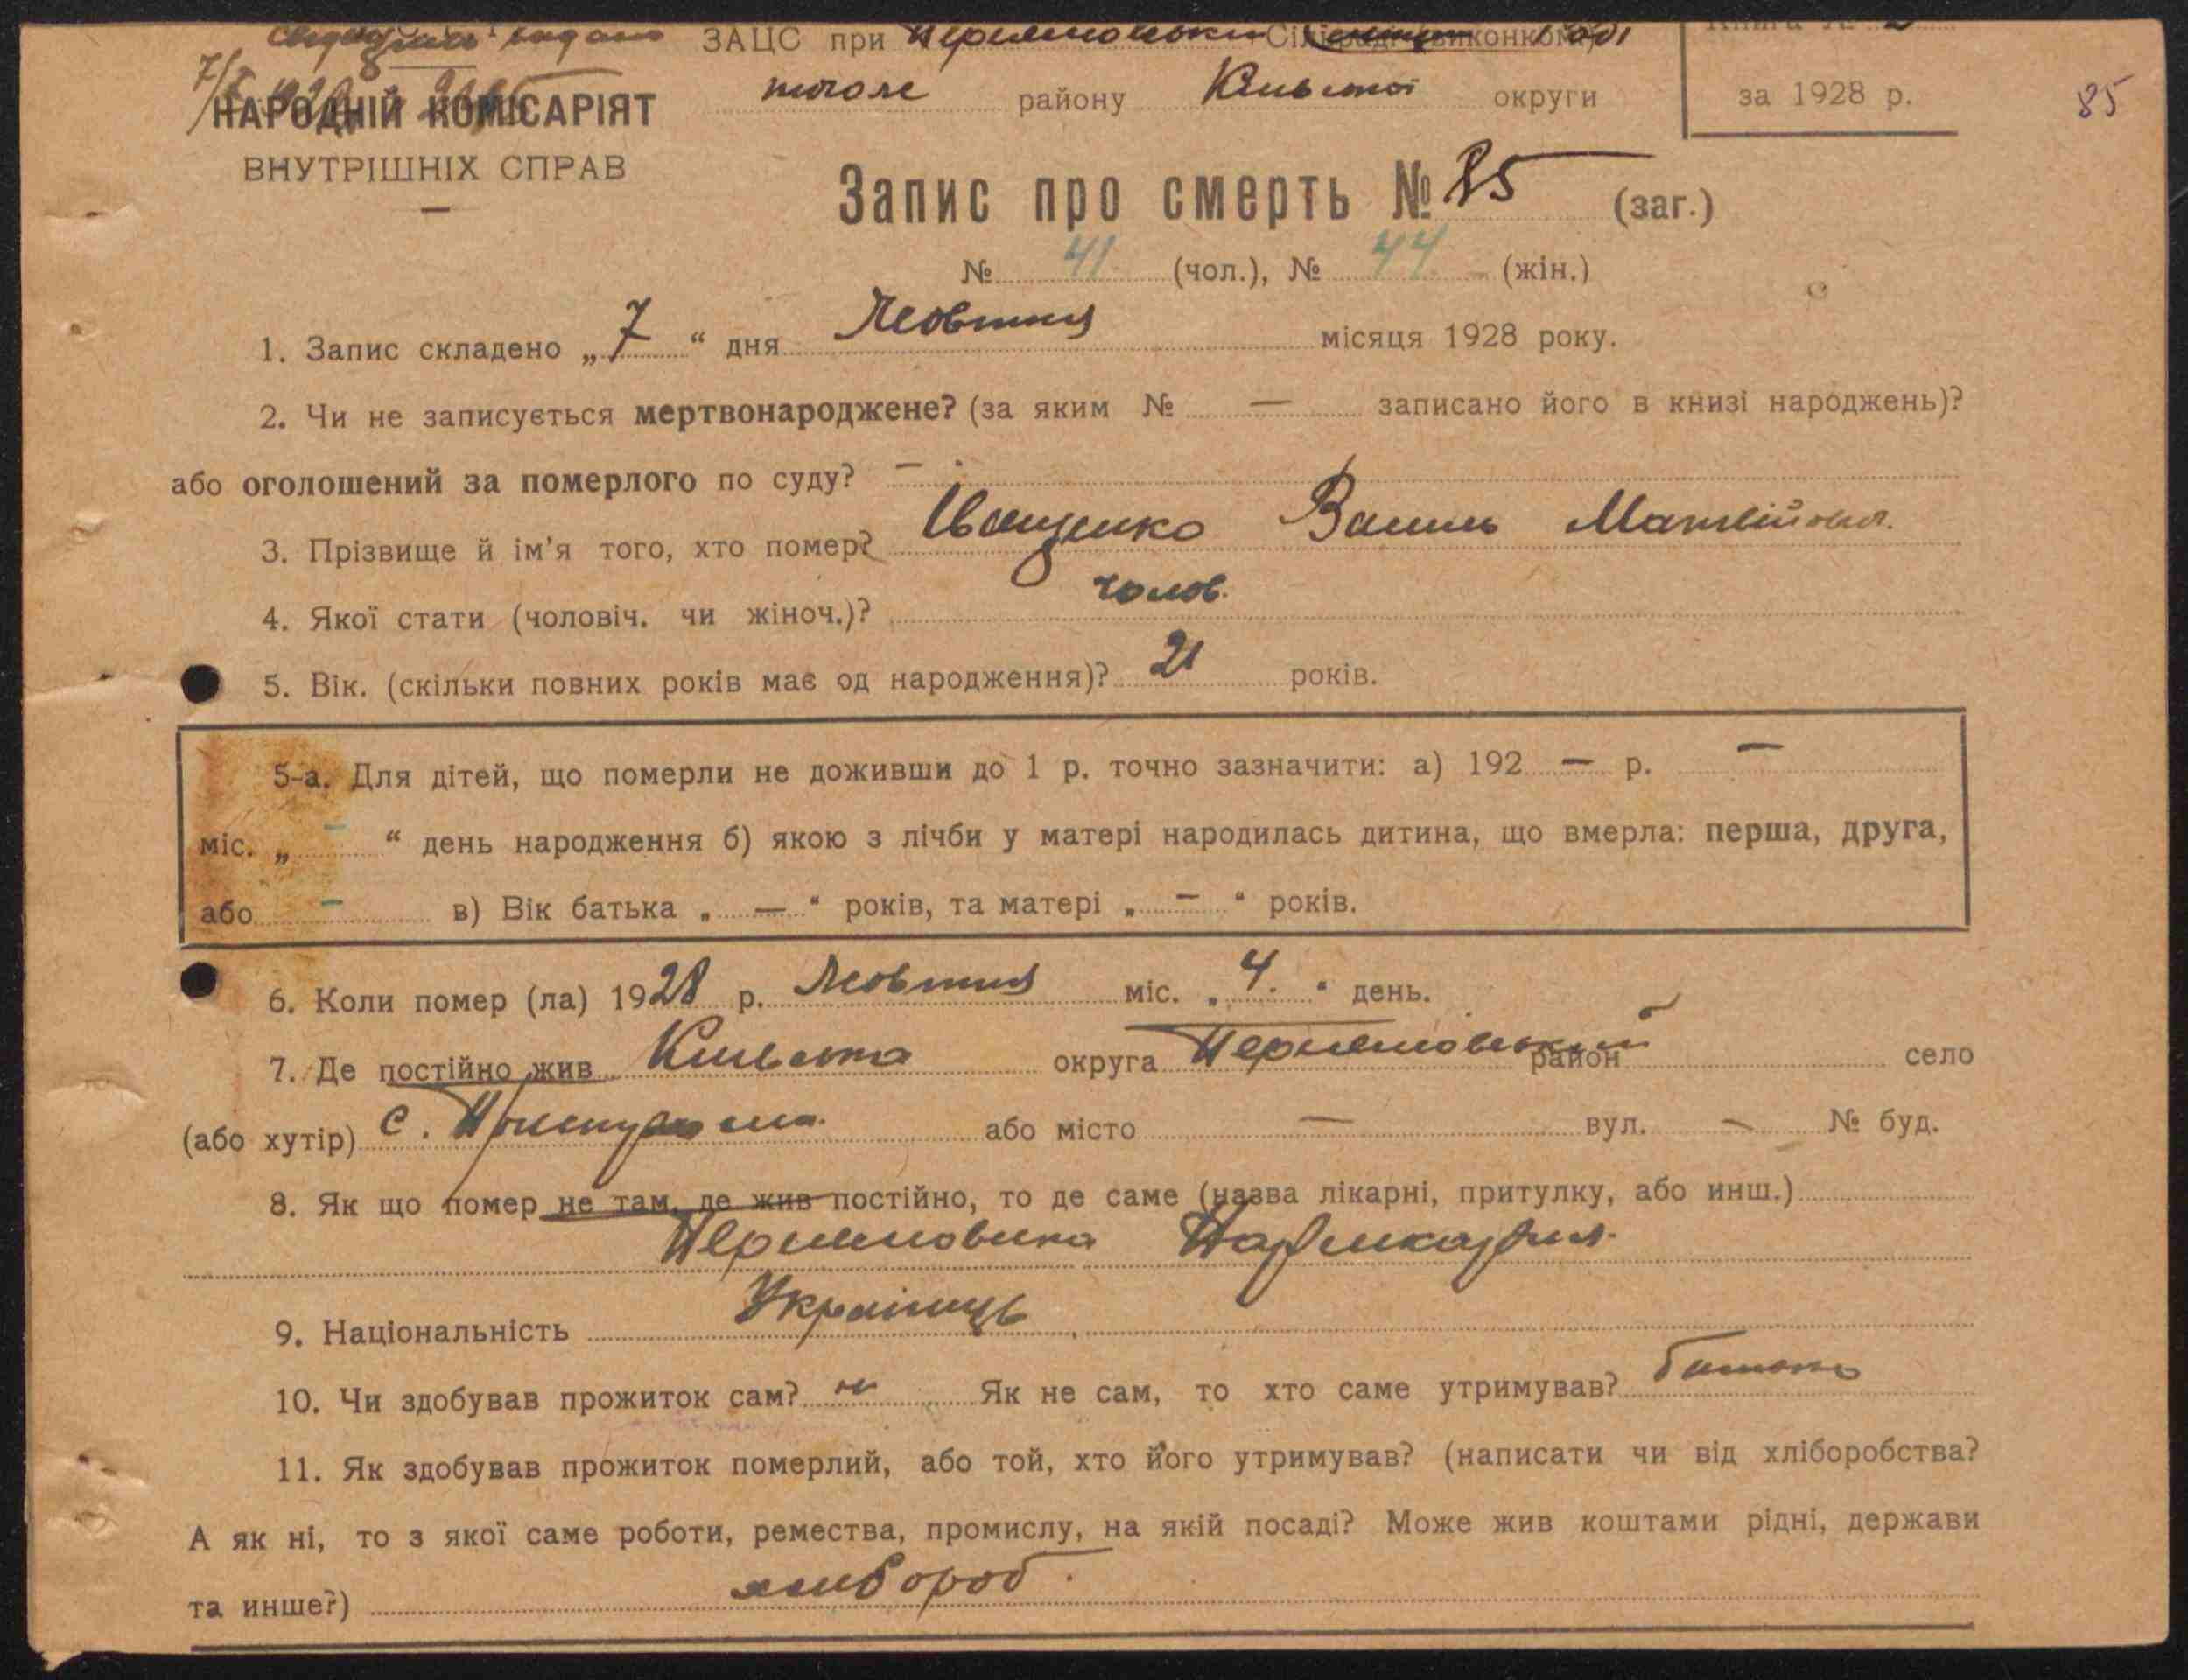 видано ЗАЦС при Сільради (виконком) Раді
Книга №
7/X района Київської округи за 1928 р. 85
НАРОДНІЙ КОМІСАРІЯТ
ВНУТРІШНІХ СПРАВ
Запис про смерть № 85 (заг.)
№ 41 (чол.), № 44 (жін.)
1. Запис складено „7“ дня Жовтня місяця 1928 року.
2. Чи не записується мертвонароджене? (за яким № — записано його в книзі народжень)?
або оголошений за померлого по суду? —
3. Прізвище й ім'я того, хто помер? Іващенко Василь Матвійович.
4. Якої стати (чоловіч. чи жіноч.)? чолов.
5. Вік. (скільки повних років має од народження)? 21 років.
5-а. Для дітей, що померли не доживши до 1 р. точно зазначити: а) 192 — р. —
міс. „ – “ день народження б) якою з лічби у матері народилась дитина, що вмерла: перша, друга,
або – в) Вік батька „ — “ років, та матері „ – “ років.
6. Коли помер (ла) 1928 р. Жовтня міс. „4.“ день.
7. Де постійно жив Київська округа район село
(або хутір) с. або місто — вул. – № буд.
8. Як що помер не там, де жив постійно, то де саме (назва лікарні, притулку, або инш.)
9. Національність Українець
10. Чи здобував прожиток сам? ні Як не сам, то хто саме утримував? батько
11. Як здобував прожиток померлий, або той, хто його утримував? (написати чи від хліборобства?
А як ні, то з якої саме роботи, ремества, промислу, на якій посаді? Може жив коштами рідні, держави
та инше?) хлібороб.